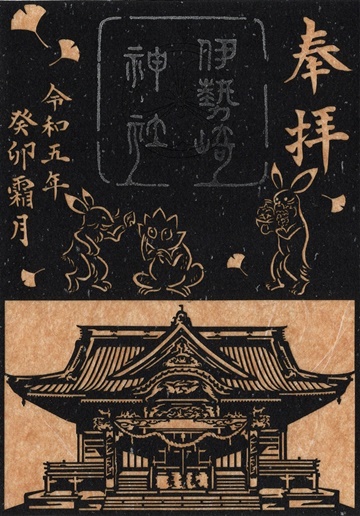 奉拝
伊勢崎
神社
令和五年
癸卯霜月